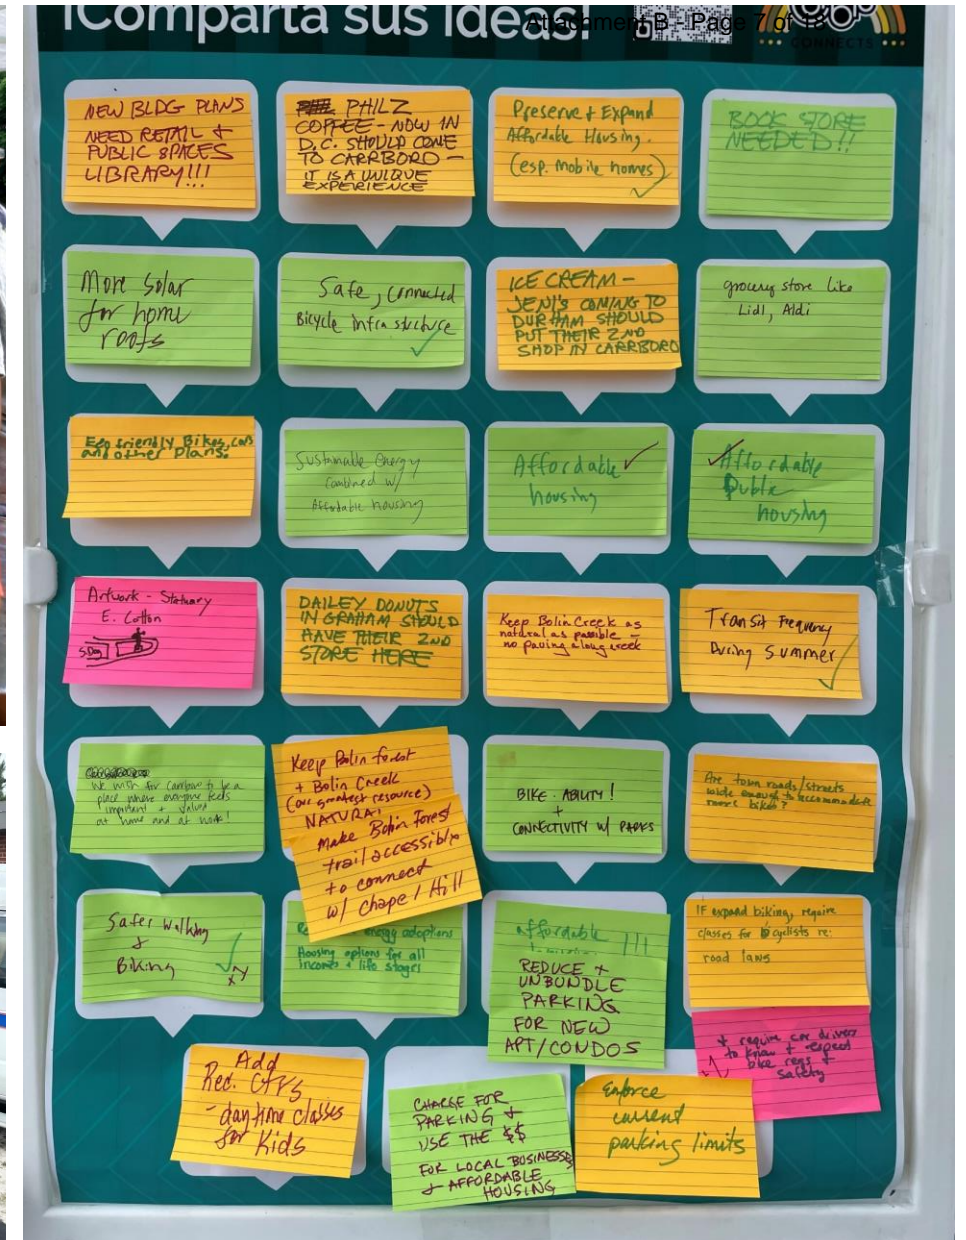 ¡Comparta sus ideas!
Attachment B - Page 7 of 18
CONNECTS
NEW BLDG PLANS
NEED RETAIL &
PUBLIC SPACES
LIBRARY!!!
PHILZ
COFFEE - NOW IN
D.C. SHOULD COME
TO CARRBORO -
IT IS A UNIQUE
EXPERIENCE
Preserve + Expand
Affordable Housing.
(esp. mobile homes)
BOOK STORE
NEEDED!!
More Solar
for home
roofs
Safe, connected
Bicycle infrastructure
ICE CREAM -
JENI'S COMING TO
DURHAM SHOULD
PUT THEIR 2ND
SHOP IN CARRBORO
grocery store like
Lidl, Aldi
Eco friendly Bikes, cars
and other plans.
Sustainable energy
combined w/
Affordable housing
Affordable
housing
Affordable
Public
housing
Artwork - Statuary
E. Cotton
DAILEY DONUTS
IN GRAHAM SHOULD
HAVE THEIR 2ND
STORE HERE
Keep Bolin Creek as
natural as possible -
no paving along creek
Transit Frequency
During Summer
We wish for Carrboro to be a
place where everyone feels
important + valued
at home and at work!
Keep Bolin forest
+ Bolin Creek
(our greatest resource)
NATURAL
Make Bolin Forest
trail accessible
to connect
w/ Chapel Hill
BIKE-ABILITY!
+
CONNECTIVITY w/ PARKS
Are town roads/streets
wide enough to accommodate
more bikes?
Safer Walking
&
Biking
energy adoptions
Housing options for all
incomes + life stages
affordable
!!!
REDUCE +
UNBUNDLE
PARKING
FOR NEW
APT/CONDOS
IF expand biking, require
classes for bicyclists re:
road laws
+ require car drivers
to know + respect
bike regs +
safety
Add
Rec. Ctrs
- daytime classes
for Kids
CHARGE FOR
PARKING &
USE THE $$
FOR LOCAL BUSINESSES
& AFFORDABLE
HOUSING
Enforce
current
parking limits